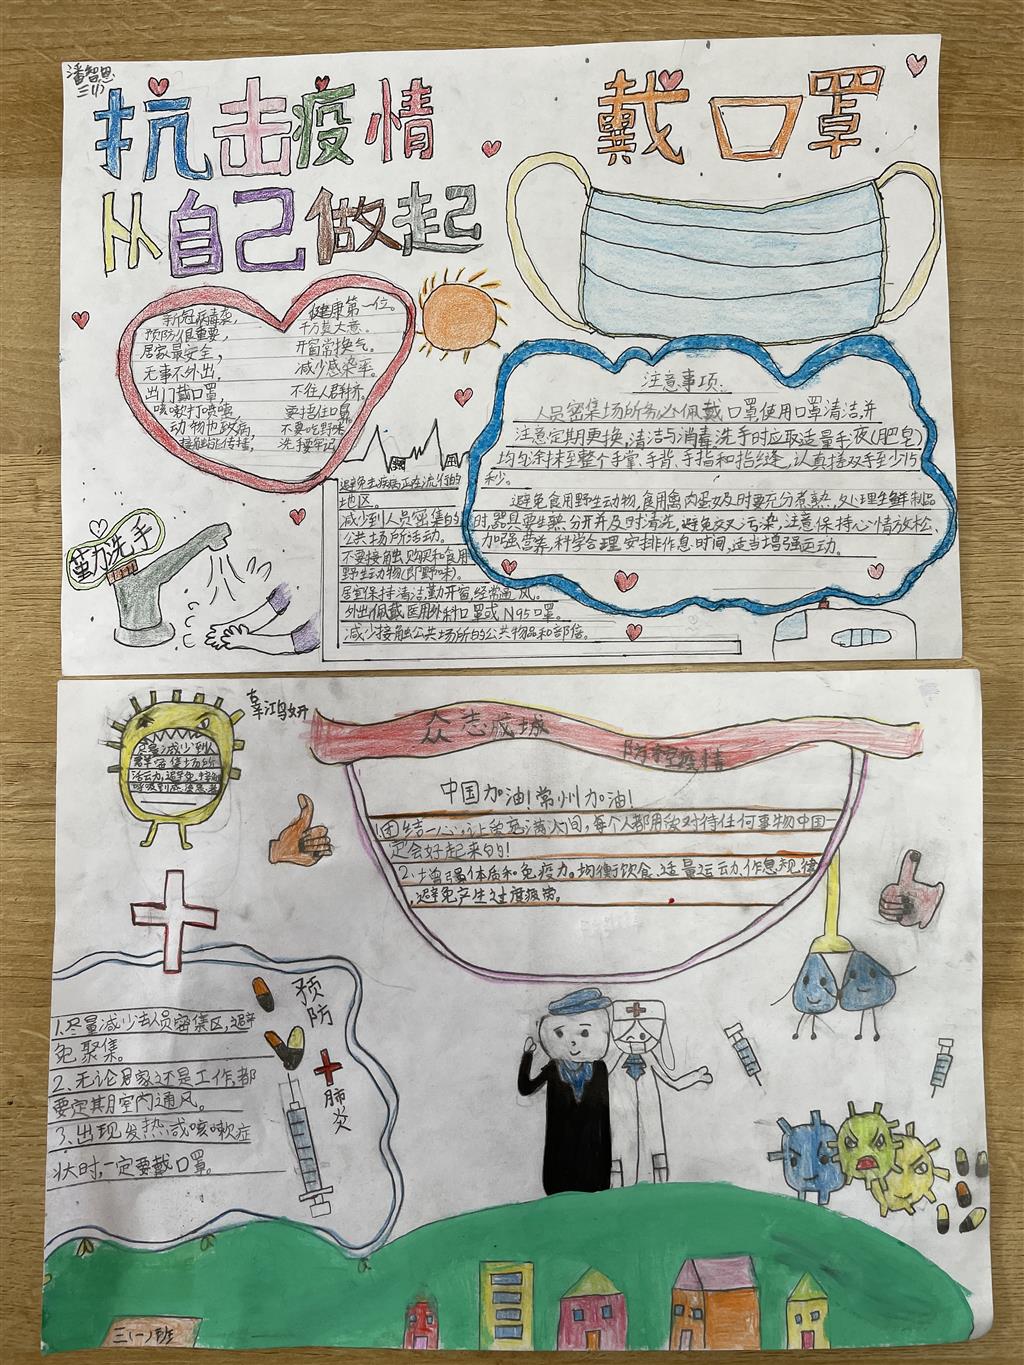 潘智思
三(1)
抗击疫情
从自己做起
戴口罩
新冠病毒袭,
预防很重要,
居家最安全,
无事不外出.
出门戴口罩,
咳嗽打喷嚏,
动物也致病,
接触把传播,
健康第一位。
千万莫大意。
开窗常换气。
减少感染率。
不往人群挤。
要捂住口鼻
不要吃野味
洗手要牢记
勤洗手
避免去疾病正在流行的
地区。
减少到人员密集的
公共场所活动。
不要接触购买和食用
野生动物(即野味)。
居室保持清洁勤开窗,经常通风。
外出佩戴医用外科口罩或N95口罩。
减少接触公共场所的公共物品和部位。
注意事项:
人员密集场所务必佩戴口罩使用口罩清洁并
注意定期更换,清洁与消毒洗手时应取适量手液(肥皂)
均匀涂抹至整个手掌、手背、手指和指缝,认真搓双手至少15
秒。
避免食用野生动物,食用禽肉蛋奶时要充分煮熟,处理生鲜制品
时,器具要生熟分开并及时清洗,避免交叉污染,注意保持心情放松、
加强营养,科学合理安排作息时间,适当增强运动。
辜江鸿妍
众志成城
防控疫情
尽量减少到人
群密集场所
活动,避免接触
呼吸到感染患者
中国加油!常州加油!
1.团结一心,让爱充满人间,每个人都用爱对待任何事物中国一
定会好起来的!
2.增强体质和免疫力。均衡饮食、适量运动、作息规律
,避免产生过度疲劳。
预防
肺炎
1.尽量减少法人员密集区,避
免聚集。
2.无论居家还是工作,都
要定期室内通风。
3.出现发热或咳嗽症
状时,一定要戴口罩。
三(一)班